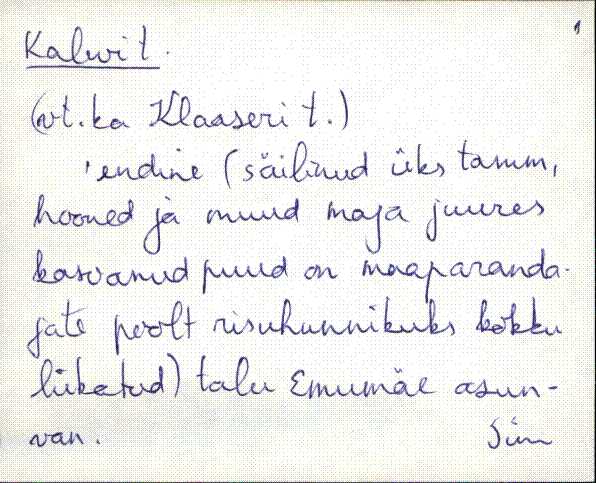 Kalwi t.
(vt. ka Klaaseri t.)
'endine (säilinud üks tamm,
hooned ja muud maja juures
kasvanud puud on maaparanda-
jate poolt risuhunnikuks kokku
lükatud) talu Emumäe asun-
van. Sim